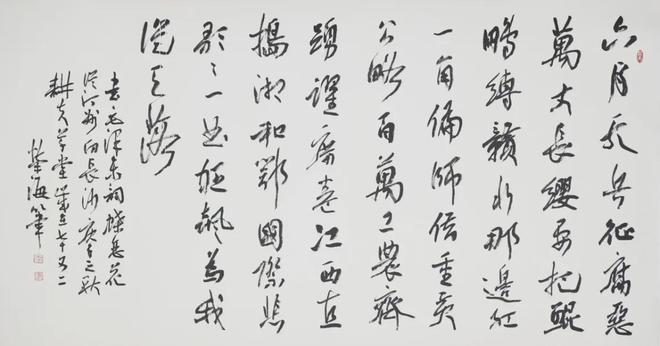 六月天兵征腐惡
萬丈長纓要把鯤
鵬縛贛水那邊紅
一角偏師借重黃
公略百萬工農齊
踴躍席卷江西直
搗湘和鄂國際悲
歌〻一曲狂飆為我
從天落
書毛澤東詞蝶戀花
從汀州向長沙庚子之秋
草堂歲七十又二
榮海筆